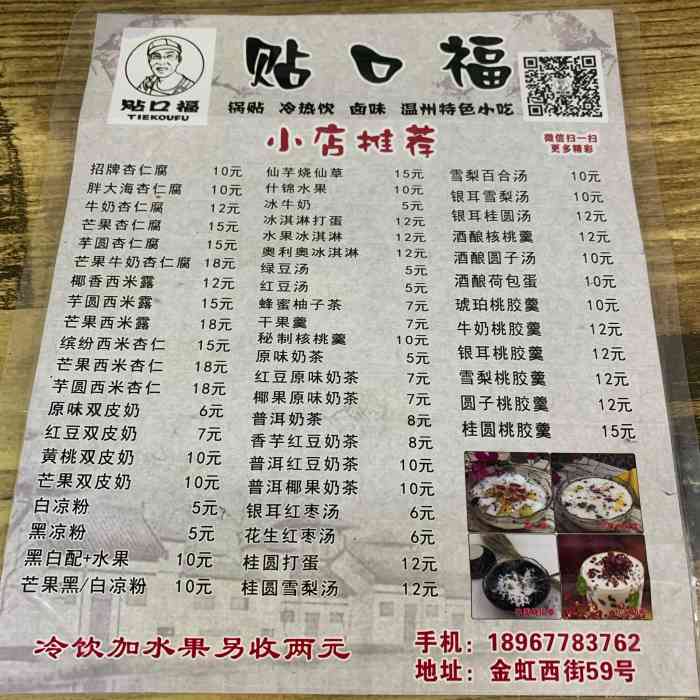 贴口福
TIEKOUFU
贴口福
锅贴 冷热饮 卤味 温州特色小吃
小店推荐
微信扫一扫
更多精彩
招牌杏仁腐 10元
胖大海杏仁腐 10元
牛奶杏仁腐 12元
芒果杏仁腐 15元
芋圆杏仁腐 15元
芒果牛奶杏仁腐 18元
椰香西米露 12元
芋圆西米露 15元
芒果西米露 18元
缤纷西米杏仁 15元
芒果西米杏仁 18元
芋圆西米杏仁 18元
原味双皮奶 6元
红豆双皮奶 7元
黄桃双皮奶 10元
芒果双皮奶 10元
白凉粉 5元
黑凉粉 5元
黑白配+水果 10元
芒果黑/白凉粉 10元
仙芋烧仙草 15元
什锦水果 10元
冰牛奶 5元
冰淇淋打蛋 12元
水果冰淇淋 12元
奥利奥冰淇淋 12元
绿豆汤 5元
红豆汤 5元
蜂蜜柚子茶 7元
干果羹 7元
秘制核桃羹 10元
原味奶茶 5元
红豆原味奶茶 7元
椰果原味奶茶 7元
普洱奶茶 8元
香芋红豆奶茶 8元
普洱红豆奶茶 10元
普洱椰果奶茶 10元
银耳红枣汤 6元
花生红枣汤 6元
桂圆打蛋 12元
桂圆雪梨汤 12元
雪梨百合汤 10元
银耳雪梨汤 10元
银耳桂圆汤 12元
酒酿核桃羹 12元
酒酿圆子汤 10元
酒酿荷包蛋 10元
琥珀桃胶羹 10元
牛奶桃胶羹 12元
银耳桃胶羹 12元
雪梨桃胶羹 12元
圆子桃胶羹 12元
桂圆桃胶羹 15元
冷饮加水果另收两元
手机：18967783762
地址：金虹西街59号